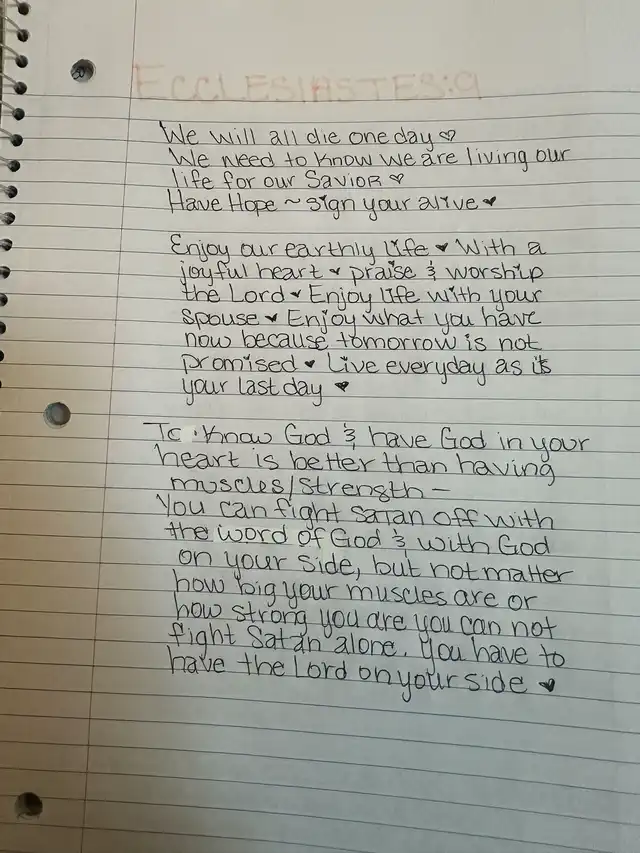 ECCLESIASTES:9
We will all die one day ♡
We need to know we are living our
life for our Savior ♡
Have Hope ~ sign your alive ♥
Enjoy our earthly life ♥ With a
joyful heart ♥ praise & worship
the Lord ♥ Enjoy life with your
spouse ♥ Enjoy what you have
now because tomorrow is not
promised ♥ Live everyday as its
your last day ♥
To know God & have God in your
heart is better than having
muscles/strength –
You can fight Satan off with
the word of God & with God
on your side, but not matter
how big your muscles are or
how strong you are you can not
fight Satan alone. You have to
have the Lord on your side ♥